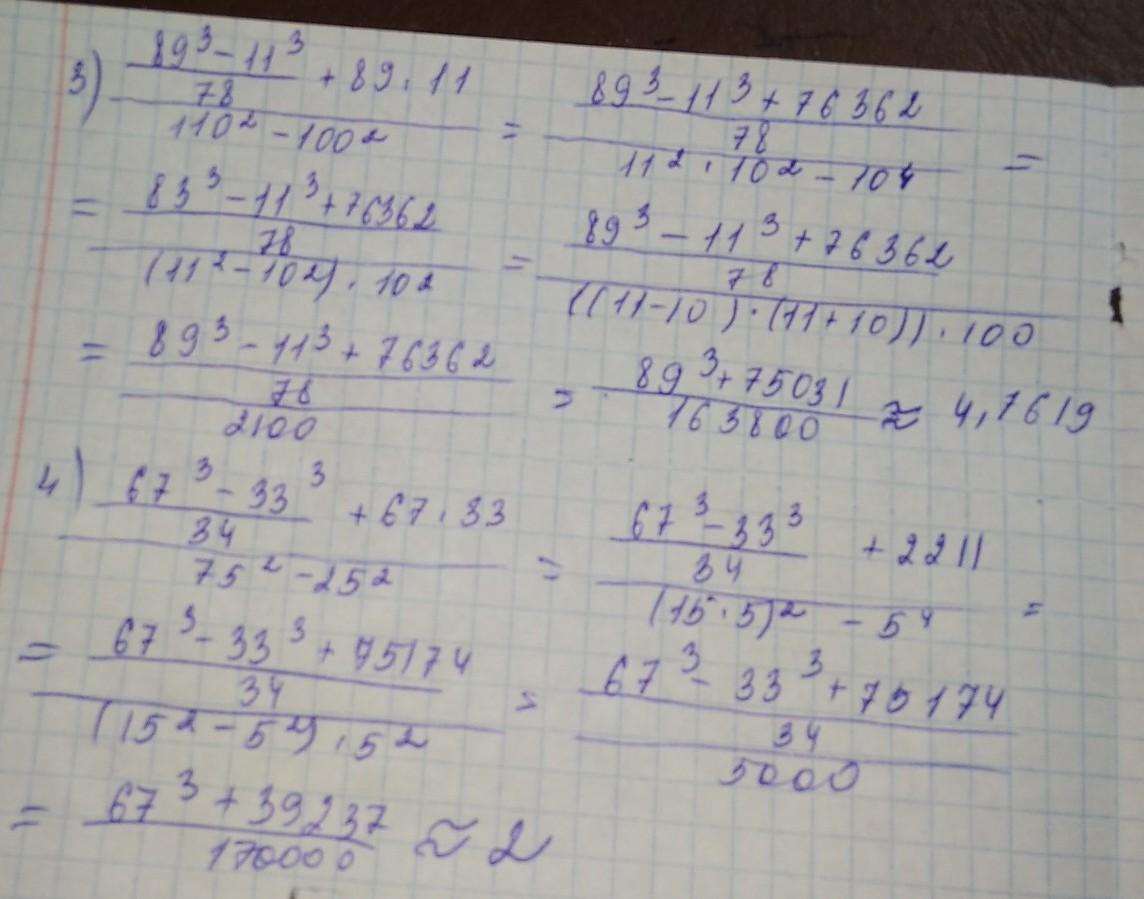 3) (89³ - 11³)/78 + 89 · 11 / 110² - 100² = (89³ - 11³ + 76362)/78 / 11² · 10² - 10⁴ =
= (83³ - 11³ + 76362)/78 / (11² - 10²) · 10² = (89³ - 11³ + 76362)/78 / ((11-10) · (11+10)) · 100
= (89³ - 11³ + 76362)/78 / 2100 = 89³ + 75031 / 163800 ≈ 4,7619
4) (67³ - 33³)/34 + 67 · 33 / 75² - 25² = (67³ - 33³)/34 + 2211 / (15 · 5)² - 5⁴ =
= (67³ - 33³ + 75174)/34 / (15² - 5²) · 5² = (67³ - 33³ + 75174)/34 / 5000
= 67³ + 39237 / 170000 ≈ 2